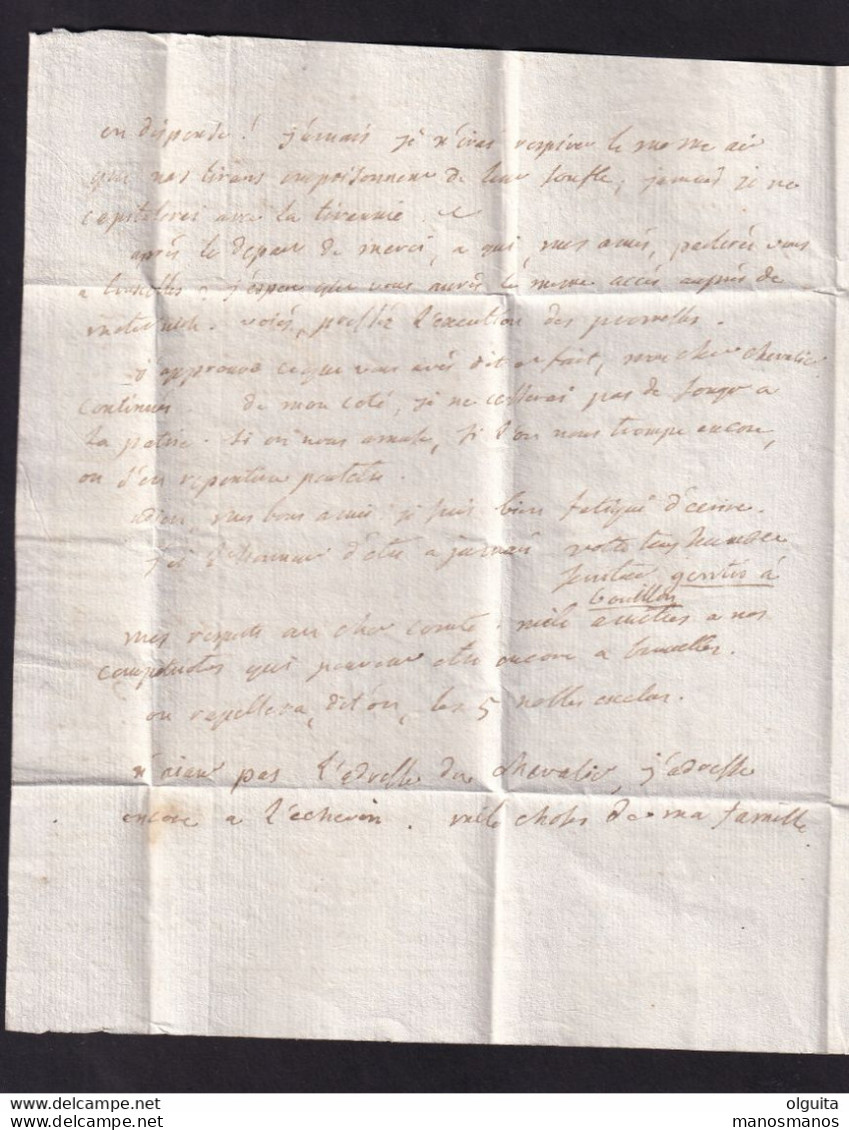 en dépende! jamais je n'irai respirer le meme air
que nos tirans empoisonnent de leur soufle, jamais je ne
capitulerai avec la tirannie.
après le depart de merci, a qui, mes amis, parlerés vous
a bruxelles? j'espere que vous aurés le meme accès auprès de
metternich. voiés, pressés l'execution des promesses.
j'approuve ce que vous avés dit et fait, mon cher chevalier
continués. de mon coté, je ne cesserai pas de songer a
la patrie. si on nous amuse, si l'on nous trompe encore,
on s'en repentira peutetre.
adieu mes bons amis. je suis bien fatigué d'ecrire.
j'ai l'honneur d'etre a jamais votre tres humble
serviteur gentis à
bouillon
mes respects au cher comte. mille amitiés a nos
compatriotes qui peuvent etre encore a bruxelles.
on rapellera, dit on, les 5 nobles exclus.
n'aiant pas l'adresse du chevalier, j'adresse
encore a l'echevin. mille choses de ma famille
olguita
manosmanos